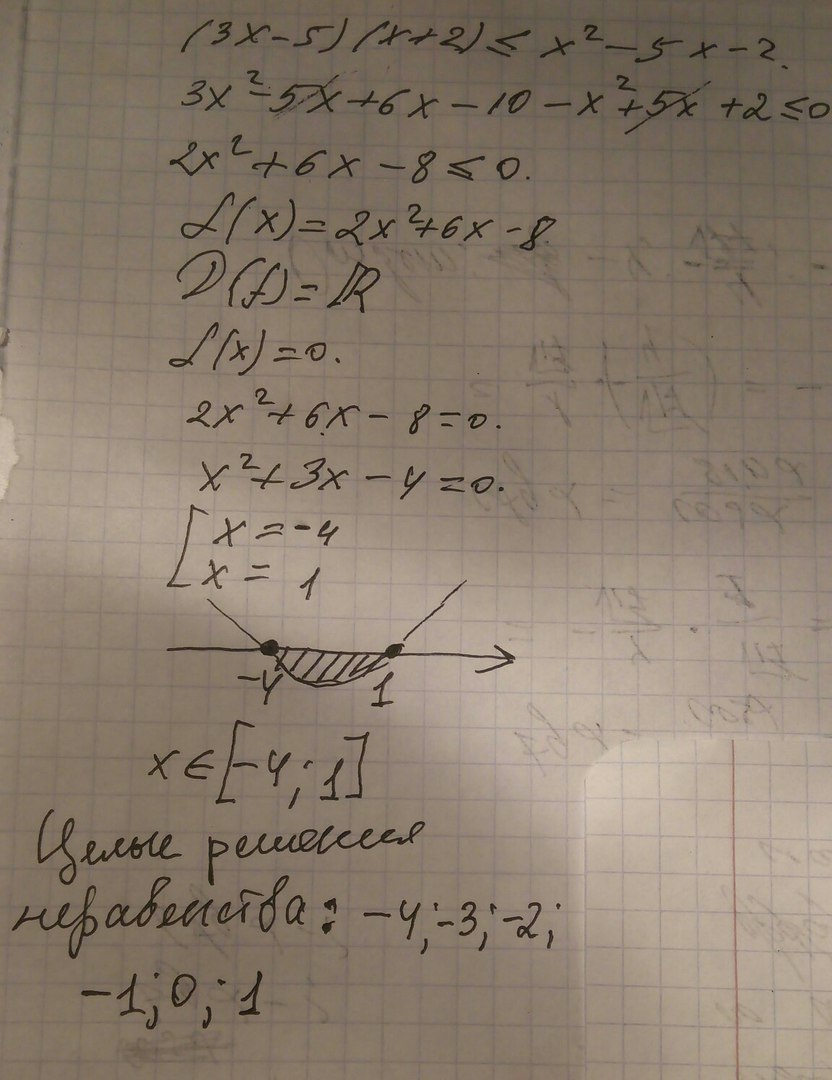 (3x-5)(x+2) ≤ x²-5x-2.
3x²-5x+6x-10-x²+5x+2≤0
2x²+6x-8≤0.
f(x)=2x²+6x-8.
D(f)=ℝ
f(x)=0.
2x²+6x-8=0.
x²+3x-4=0.
[x=-4
x=1
-4 1
x∈[-4;1]
Целые решения
неравенства: -4;-3;-2;
-1;0;1